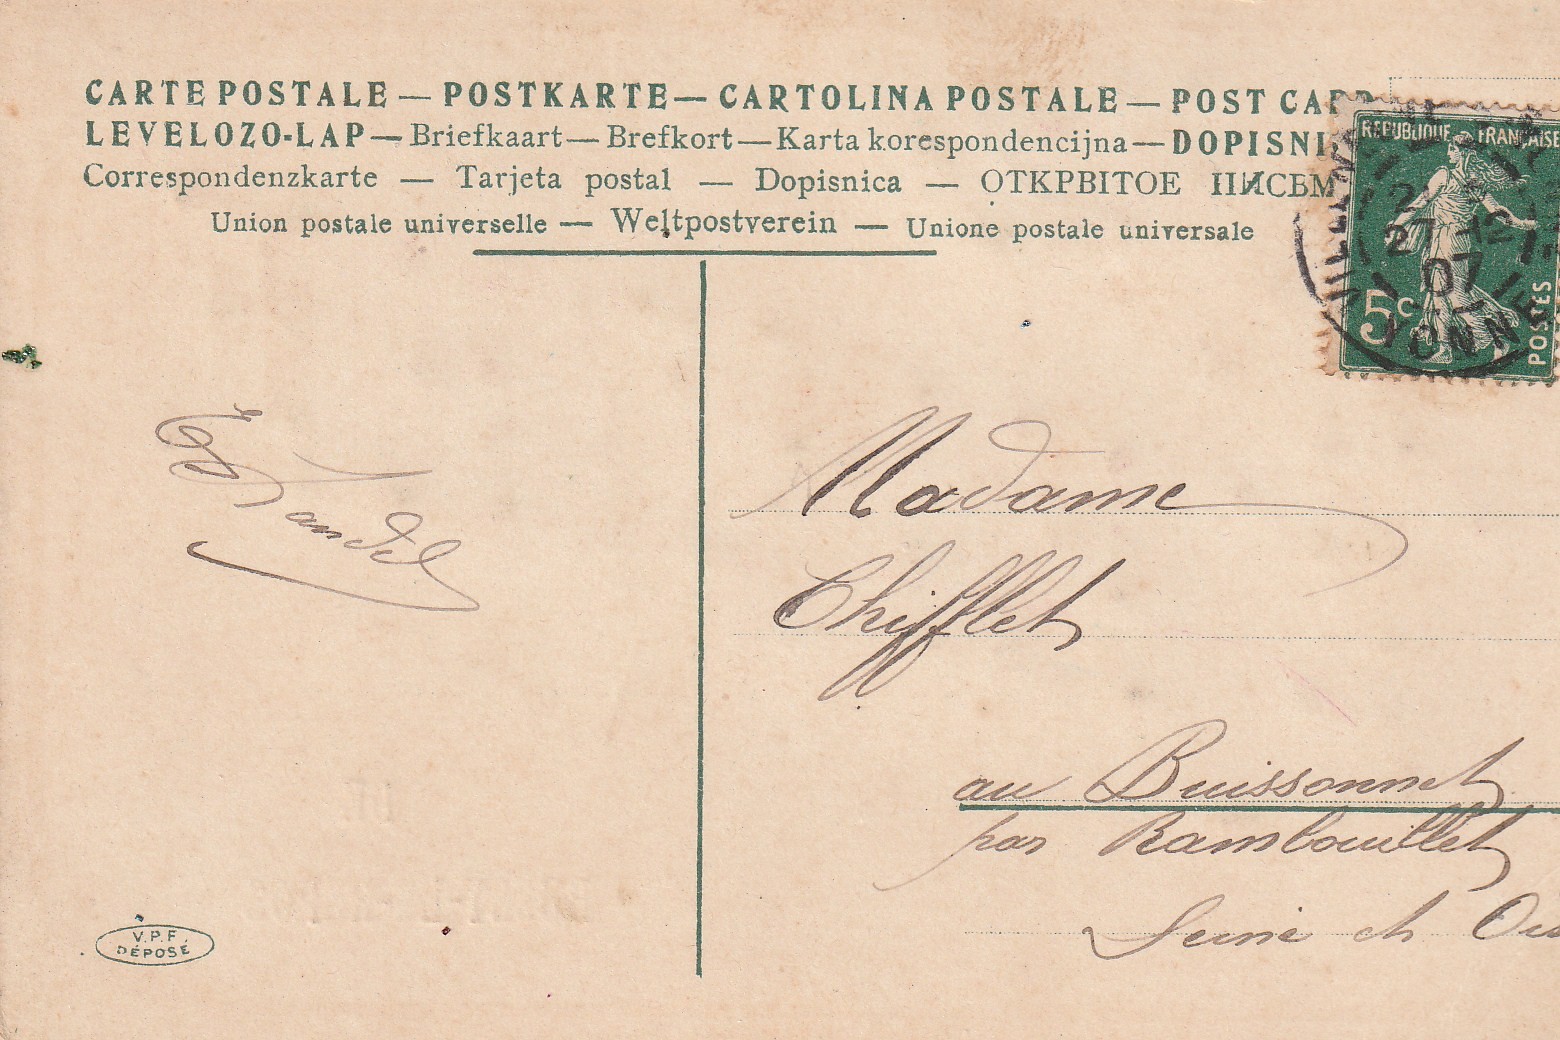 CARTE POSTALE — POSTKARTE — CARTOLINA POSTALE — POST CARD
LEVELOZO-LAP — Briefkaart — Brefkort — Karta korespondencijna — DOPISNI
Correspondenzkarte — Tarjeta postal — Dopisnica — ОТКРВІТОЕ ПИСЬМ
Union postale universelle — Weltpostverein — Unione postale universale
REPUBLIQUE FRANÇAISE
27 -12
07
5c
POSTES
YONNE
Madame
Chifflet
au Buissonnet
par Rambouillet
Seine et Oi
V.P.F.
DÉPOSÉ